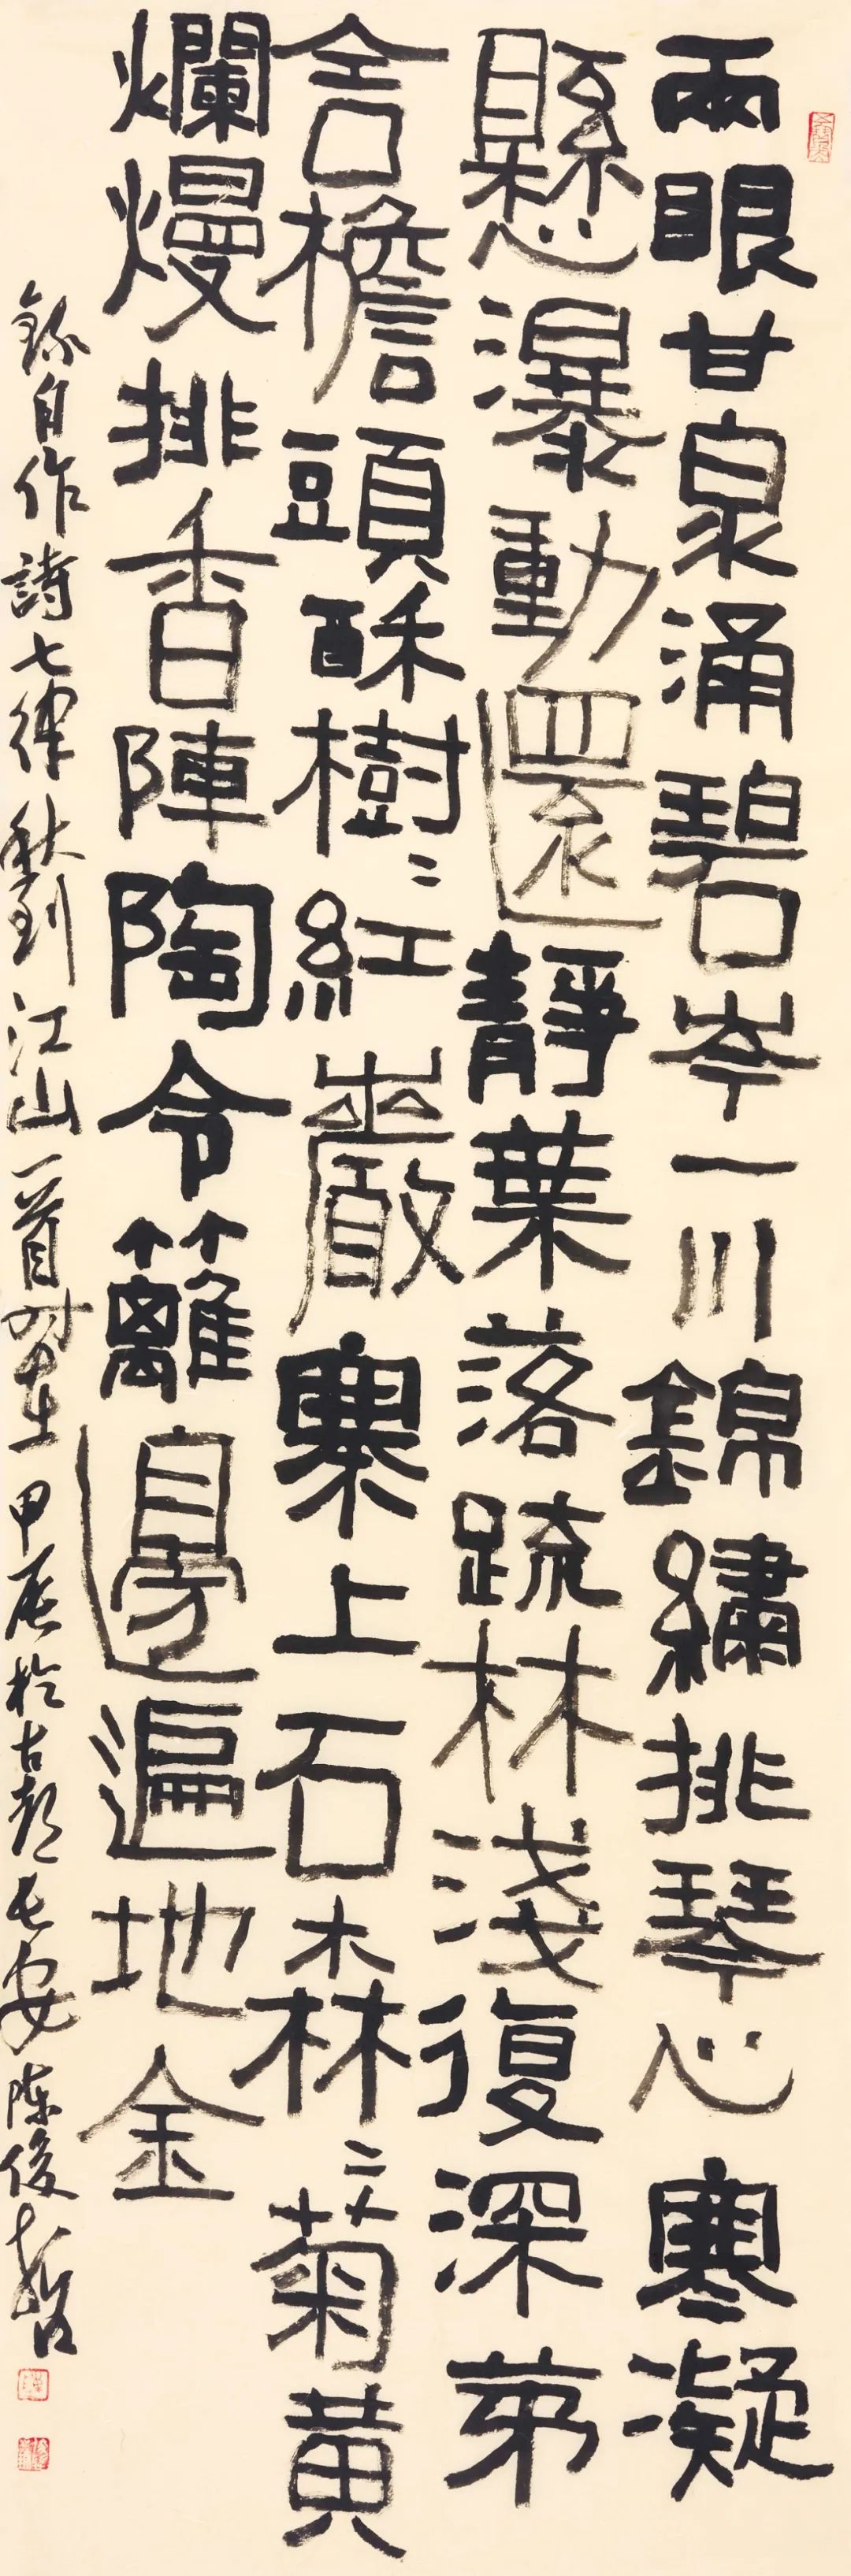 兩眼甘泉涌碧岑一川錦繡挑琴心寒凝
懸瀑動還靜葉落疏林淺復深茅
舍檐頭酥樹〻紅巖寨上石森〻菊黃
爛熳排香陣陶令籬邊遍地金
錄自作詩七律秋到江山一首时在甲辰於古都長安陳俊哲